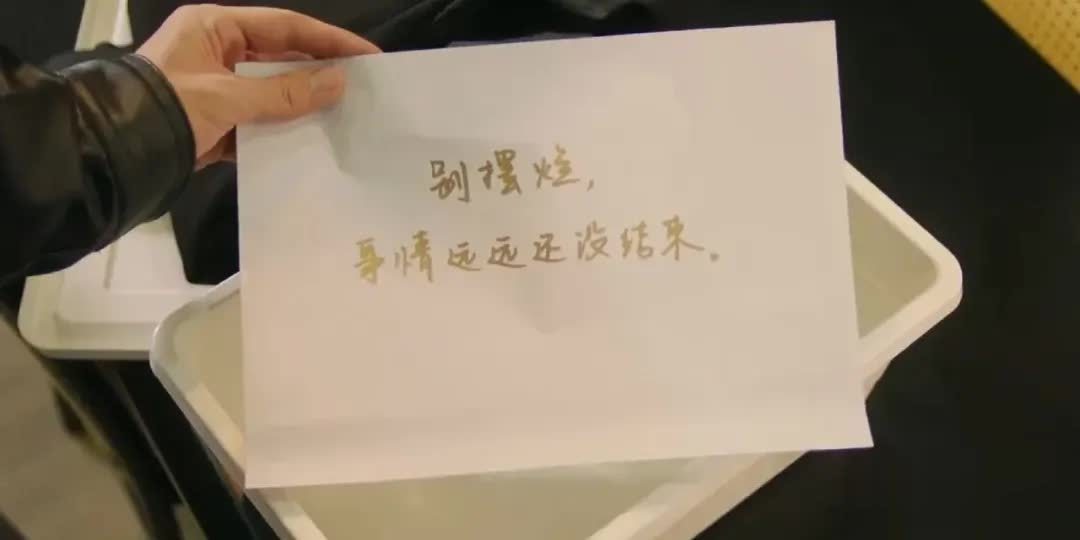 别摆烂，
事情远远还没结束。